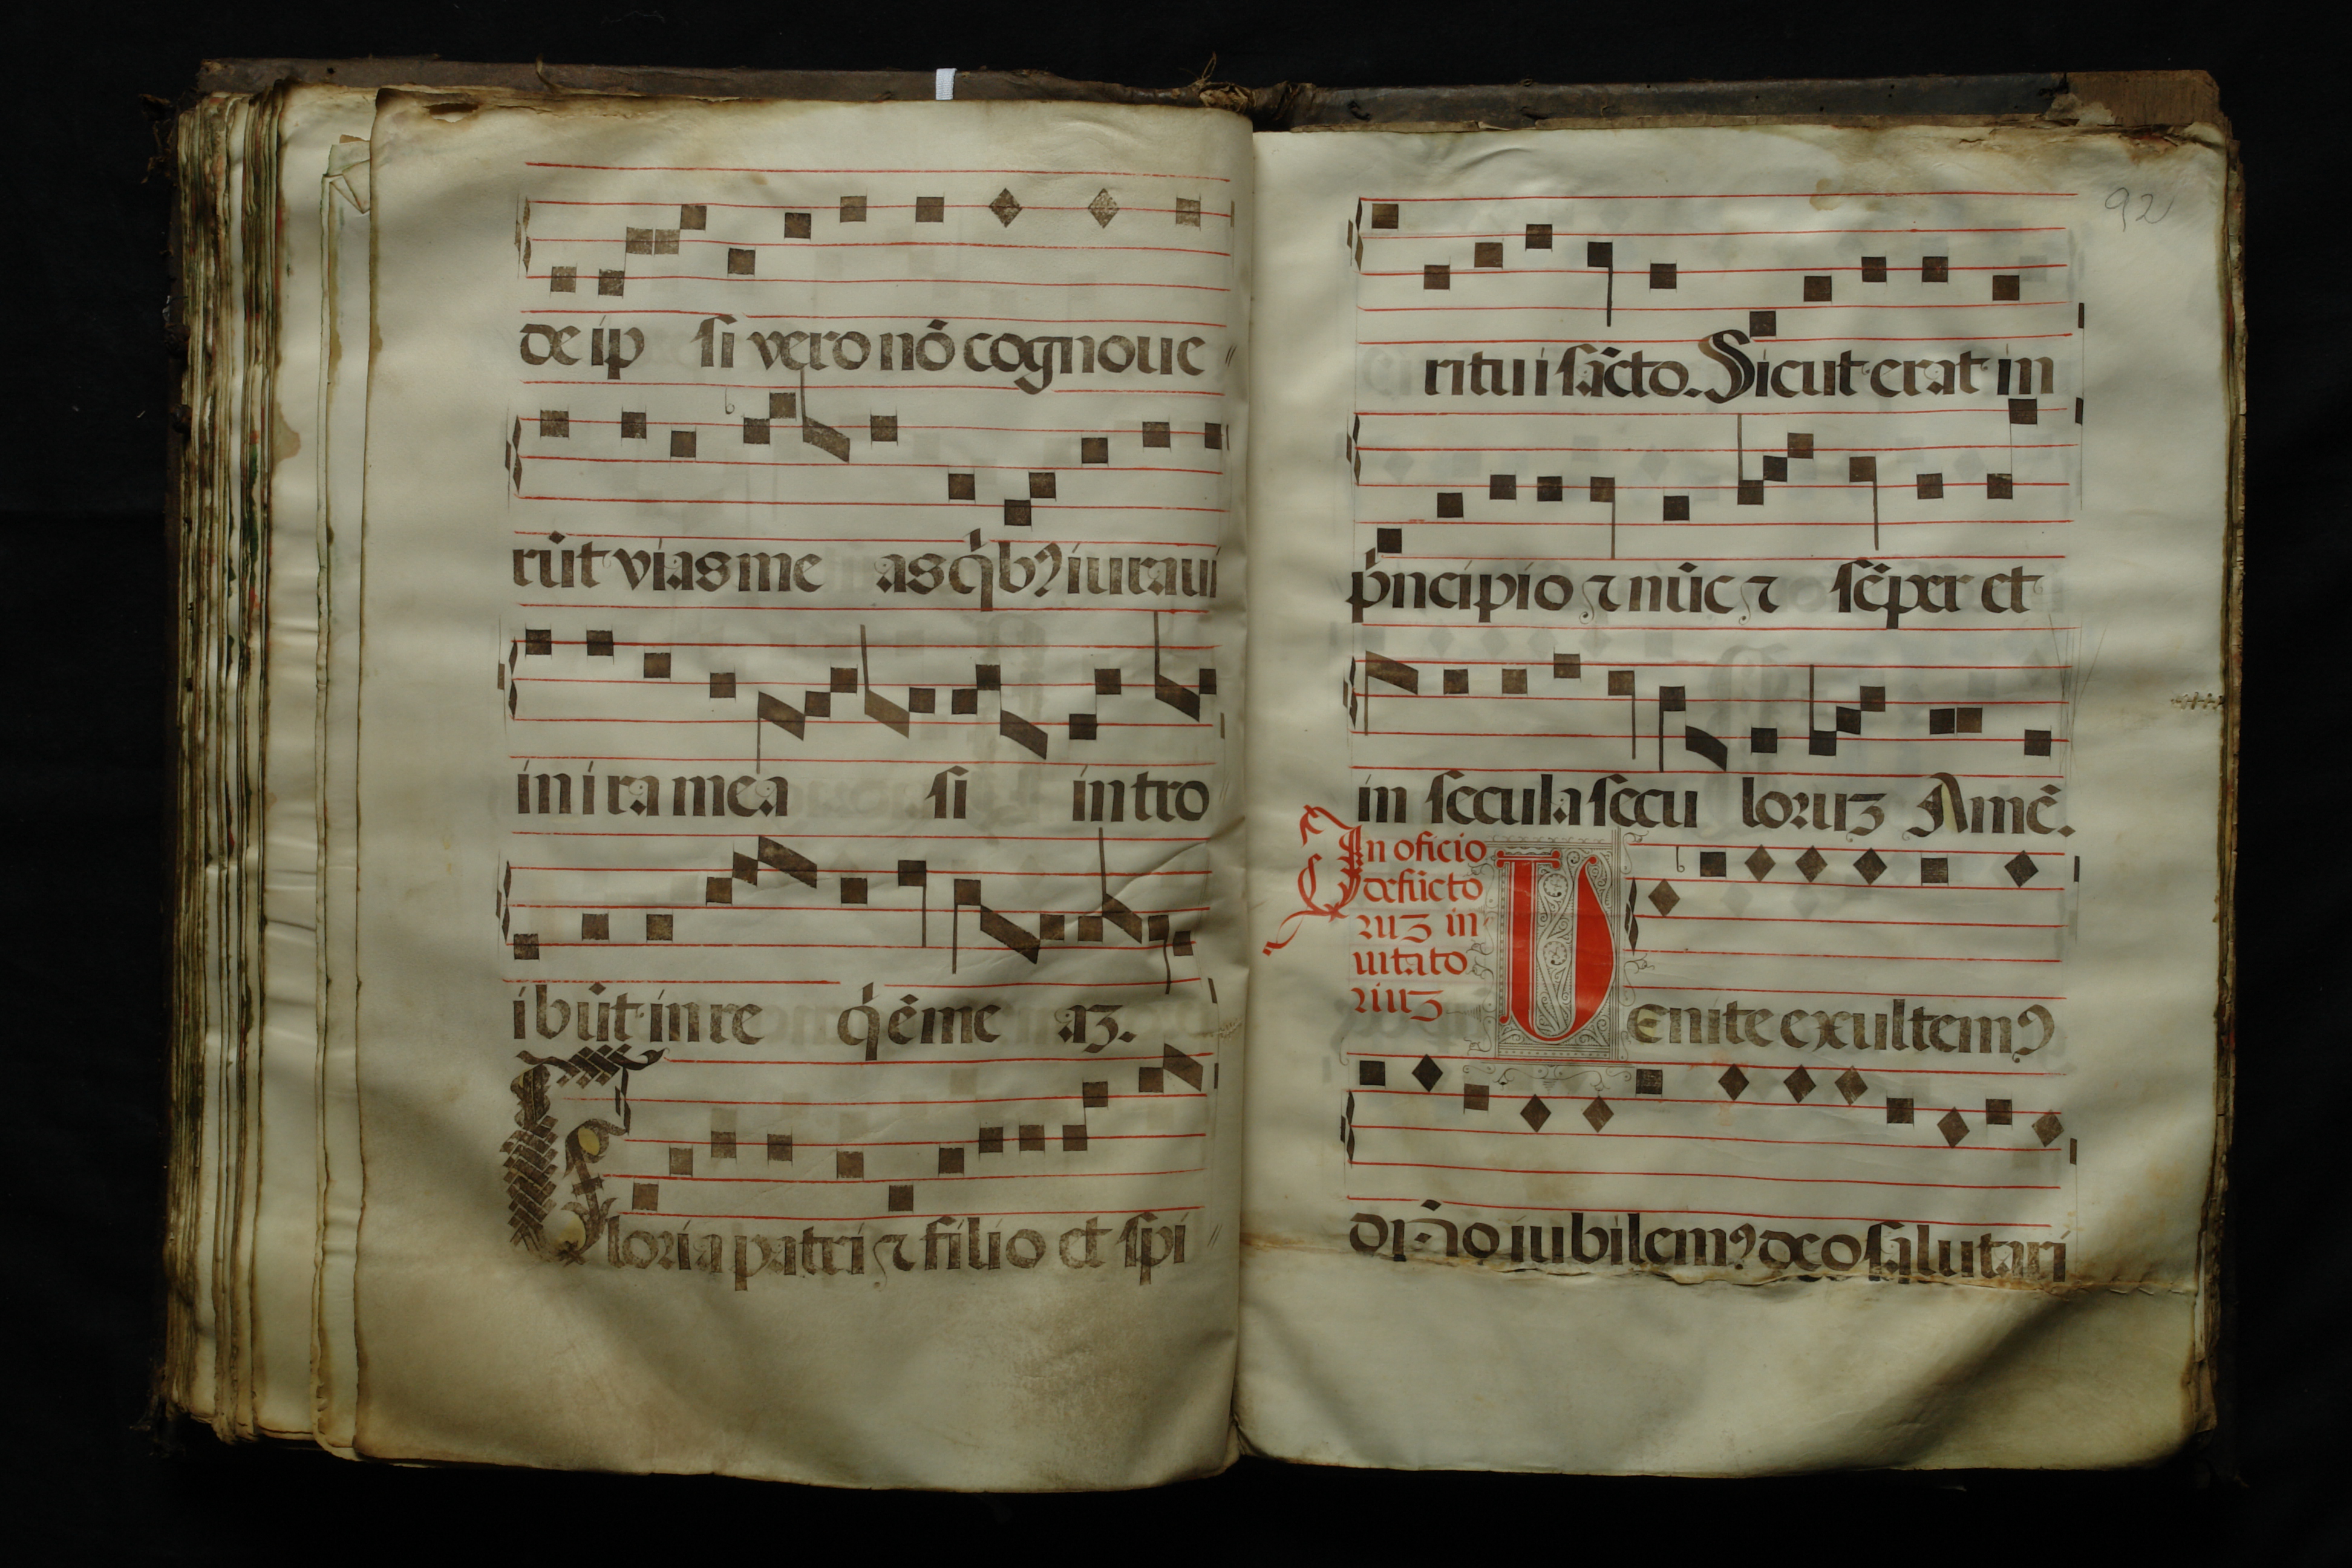 de ip si vero nō cognoue
rūt vias me as q̇bꝰ iuraui
in ira mea si intro
ibūt in re q̇ē me aʒ.
Gloria patri ⁊ filio et spi
92
ritui sācto. Sicut erat in
pͥncipio ⁊ nūc ⁊ sēper et
in secula secu loruʒ Amē.
In oficio
defūcto
ruʒ in
uitato
riuʒ
Uenite exultemꝰ
dn̄o iubilemꝰ deo salutari